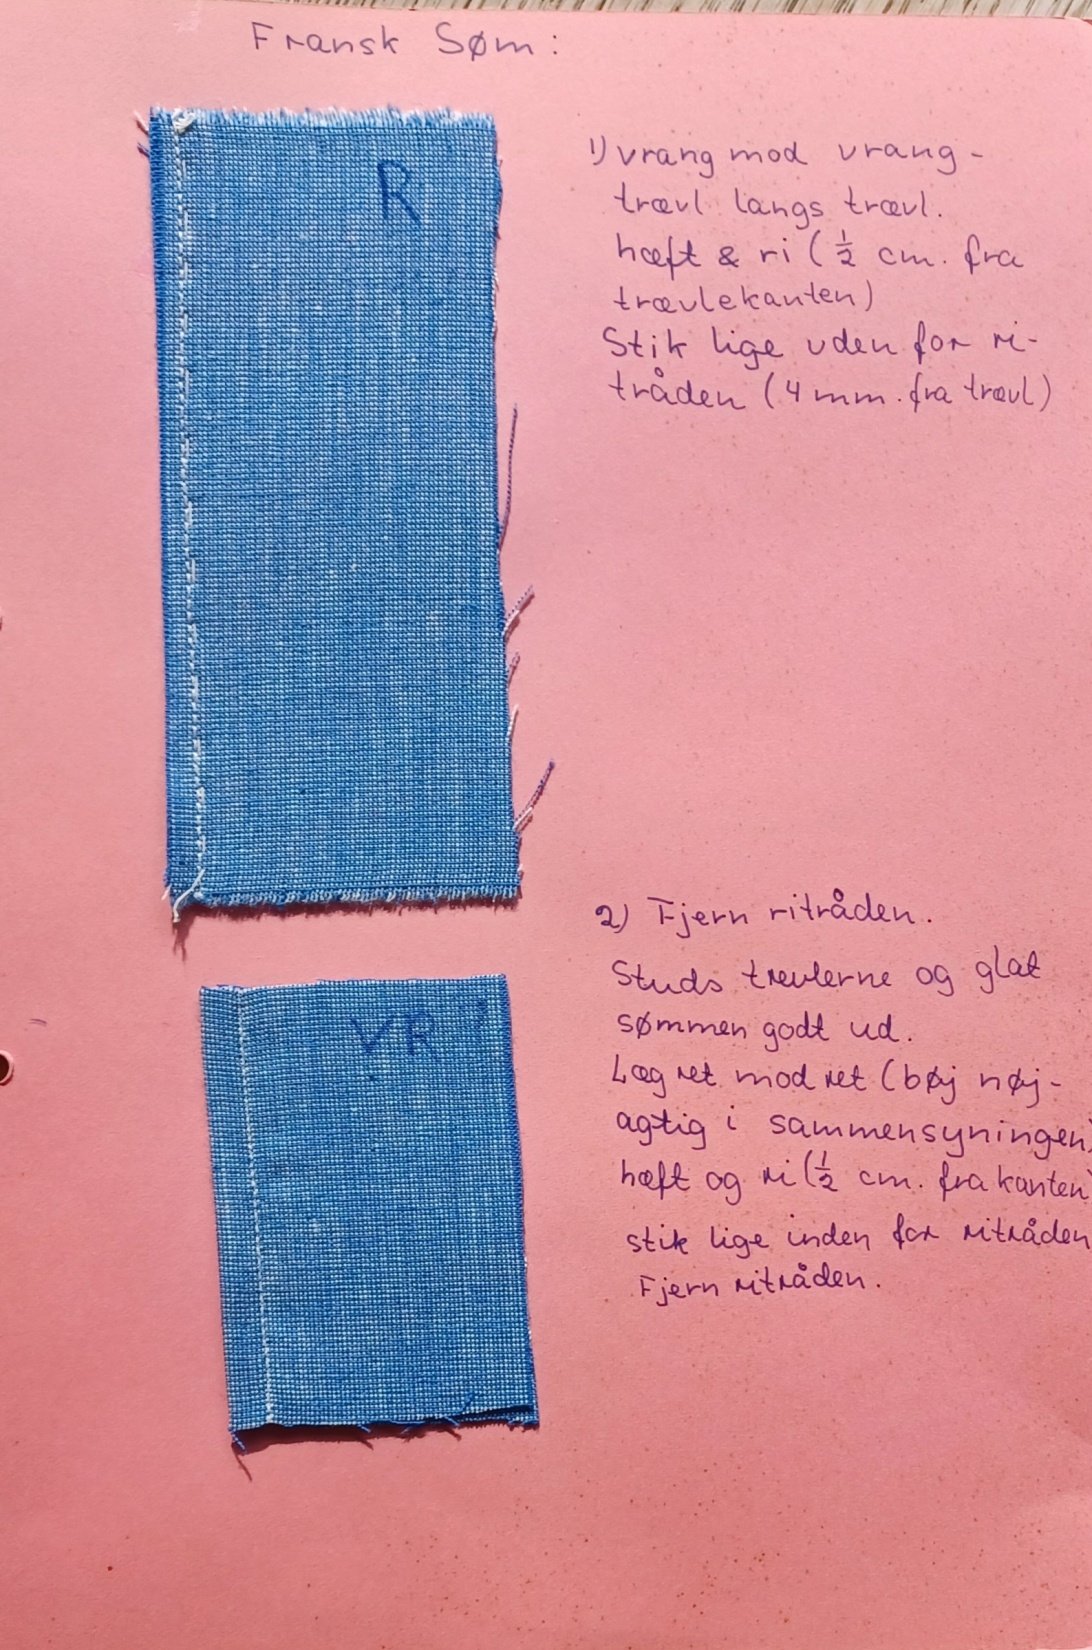 Fransk Søm:
R
1) vrang mod vrang -
trævl langs trævl.
hæft & ri (½ cm. fra
trævlekanten)
Stik lige uden for ri-
tråden (4 mm. fra trævl)
2) Fjern ritråden.
Studs trevlerne og glat
sømmen godt ud.
Læg ret mod ret (bøj nøj-
agtig i sammensyningen)
hæft og ri (½ cm. fra kanten)
stik lige inden for ritråden
Fjern ritråden.
VR